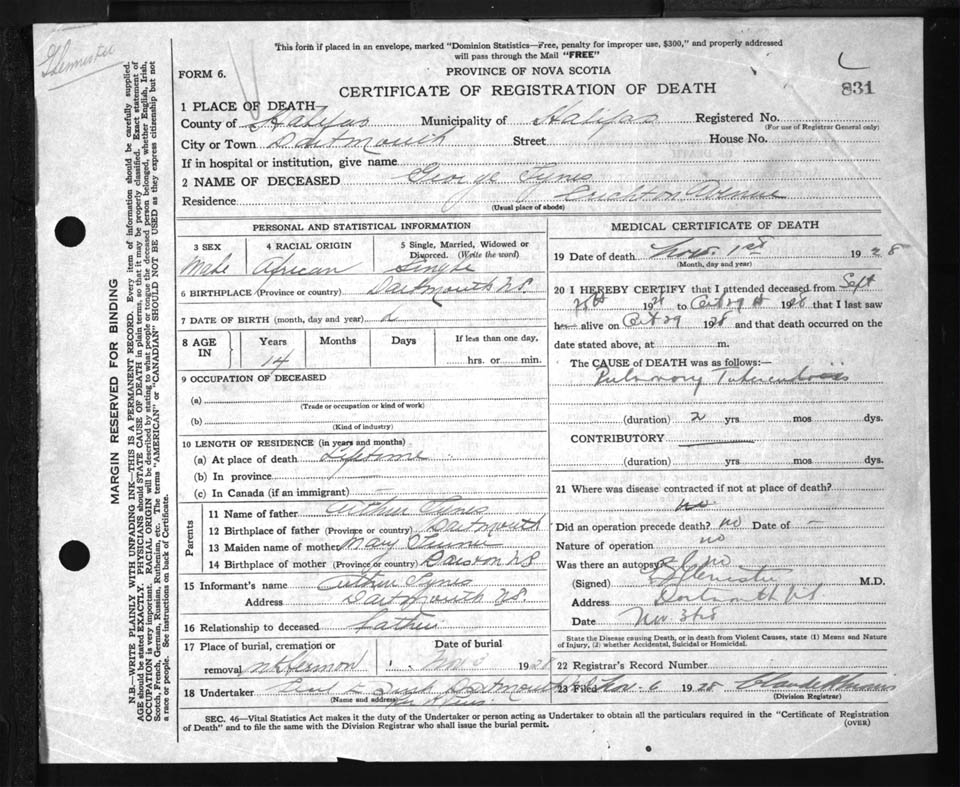 This form if placed in an envelope, marked "Dominion Statistics—Free, penalty for improper use, $300," and properly addressed
will pass through the Mail "FREE"
FORM 6.
PROVINCE OF NOVA SCOTIA
CERTIFICATE OF REGISTRATION OF DEATH
831
1 PLACE OF DEATH—
County of Halifax Municipality of Halifax Registered No.
(For use of Registrar General only)
City or Town Dartmouth Street House No.
If in hospital or institution, give name
2 NAME OF DECEASED George Tynes
Residence Crichton Avenue
(Usual place of abode)
PERSONAL AND STATISTICAL INFORMATION
3 SEX 4 RACIAL ORIGIN 5 Single, Married, Widowed or Divorced. (Write the word)
Male African Single
6 BIRTHPLACE (Province or country) Dartmouth N.S.
7 DATE OF BIRTH (month, day and year)
8 AGE IN Years Months Days If less than one day,
14 hrs. or min.
9 OCCUPATION OF DECEASED
(a)
(Trade or occupation or kind of work)
(b)
(Kind of industry)
10 LENGTH OF RESIDENCE (in years and months)
(a) At place of death Lifetime
(b) In province
(c) In Canada (if an immigrant)
Parents
11 Name of father Arthur Tynes
12 Birthplace of father (Province or country) Dartmouth
13 Maiden name of mother Mary
14 Birthplace of mother (Province or country) N.S.
15 Informant's name Arthur Tynes
Address Dartmouth N.S.
16 Relationship to deceased Father
17 Place of burial, cremation or removal Date of burial
Mt Hermon Nov 3 1928
18 Undertaker Dartmouth
(Name and address)
MEDICAL CERTIFICATE OF DEATH
19 Date of death Nov. 1st 1928
(Month, day and year)
20 I HEREBY CERTIFY that I attended deceased from Sept
1928 to Oct 29th 1928 that I last saw
h alive on Oct 29 1928 and that death occurred on the
date stated above, at m.
The CAUSE of DEATH was as follows:—
Pulmonary Tuberculosis
(duration) 2 yrs mos dys.
CONTRIBUTORY
(duration) yrs. mos. dys.
21 Where was disease contracted if not at place of death?
no
Did an operation precede death? no Date of –
Nature of operation no
Was there an autopsy? no
(Signed) M.D.
Address Dartmouth N.S.
Date Nov 3rd
State the Disease causing Death, or in death from Violent Causes, state (1) Means and Nature of Injury, (2) whether Accidental, Suicidal or Homicidal.
22 Registrar's Record Number
23 Filed Nov. 6 1928
(Division Registrar)
SEC. 46—Vital Statistics Act makes it the duty of the Undertaker or person acting as Undertaker to obtain all the particulars required in the "Certificate of Registration
of Death" and to file the same with the Division Registrar who shall issue the burial permit. (OVER)
MARGIN RESERVED FOR BINDING
N.B.—WRITE PLAINLY WITH UNFADING INK—THIS IS A PERMANENT RECORD. Every item of information should be carefully supplied.
AGE should be stated EXACTLY. PHYSICIANS should STATE CAUSE OF DEATH in plain terms, so that it may be properly classified. Exact statement of
OCCUPATION is very important. RACIAL ORIGIN will be described by stating to what people or tongue the deceased person belonged, whether English, Irish,
Scotch, French, German, Russian, Ruthenian, etc. The terms "AMERICAN" or "CANADIAN" SHOULD NOT BE USED as they express citizenship but not
a race or people. See instructions on back of Certificate.